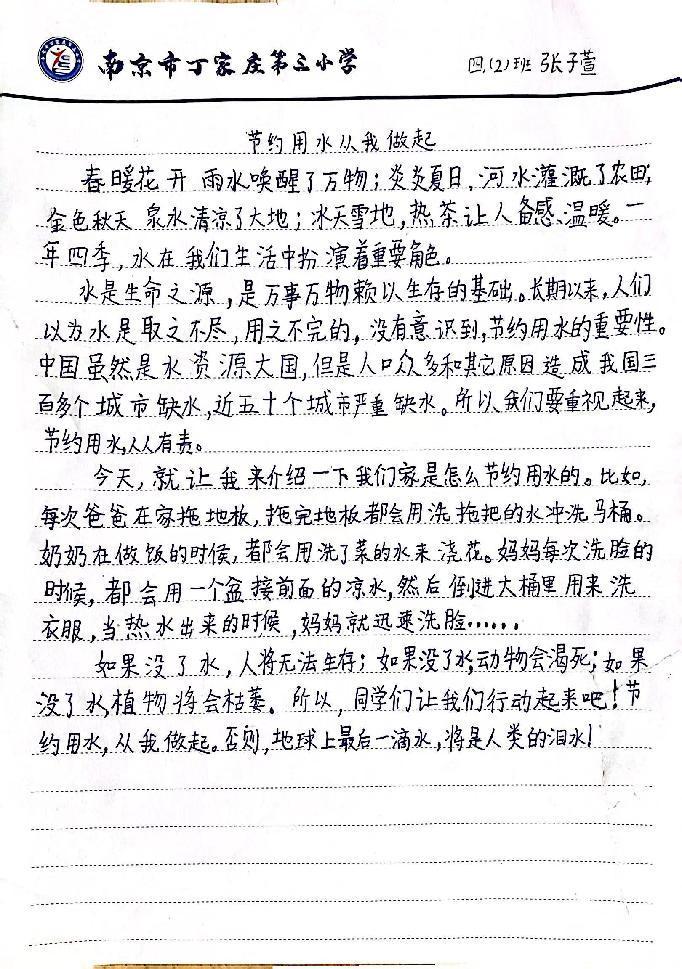 南京市丁家庄第三小学 四(2)班 张子萱
节约用水从我做起
春暖花开 雨水唤醒了万物；炎炎夏日，河水灌溉了农田；
金色秋天 泉水清凉了大地；冰天雪地，热茶让人备感温暖。一
年四季，水在我们生活中扮演着重要角色。
水是生命之源，是万事万物赖以生存的基础。长期以来，人们
以为水是取之不尽，用之不完的，没有意识到，节约用水的重要性。
中国虽然是水资源大国，但是人口众多和其它原因造成我国三
百多个城市缺水，近五十个城市严重缺水。所以我们要重视起来，
节约用水，人人有责。
今天，就让我来介绍一下我们家是怎么节约用水的。比如，
每次爸爸在家拖地板，拖完地板都会用洗拖把的水冲洗马桶。
奶奶在做饭的时候，都会用洗了菜的水来浇花。妈妈每次洗脸的
时候，都会用一个盆接前面的凉水，然后倒进大桶里用来洗
衣服，当热水出来的时候，妈妈就迅速洗脸……
如果没了水，人将无法生存；如果没了水，动物会渴死；如果
没了水，植物将会枯萎。所以，同学们让我们行动起来吧！节
约用水，从我做起。否则，地球上最后一滴水，将是人类的泪水！